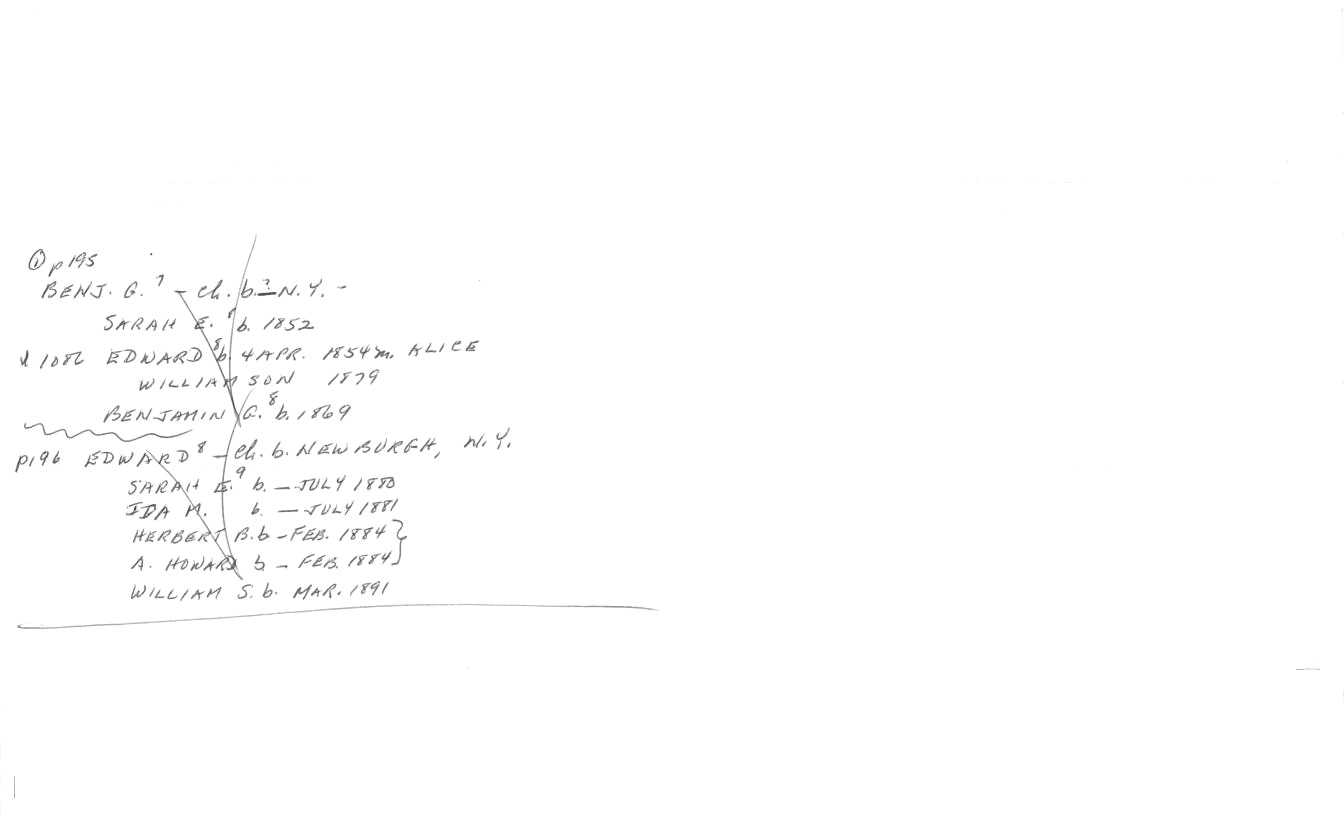 ① p195
BENJ. G.⁷ – ch. b. ? N.Y. –
SARAH E.⁸ b. 1852
1086 EDWARD⁸ b. 4 APR. 1854 m. ALICE
WILLIAMSON 1879
BENJAMIN G.⁸ b. 1869
p196 EDWARD⁸ – ch. b. NEWBURGH, N.Y.
SARAH E.⁹ b. – JULY 1880
IDA M. b. – JULY 1881
HERBERT B. b – FEB. 1884
A. HOWARD b – FEB. 1884
WILLIAM S. b. MAR. 1891